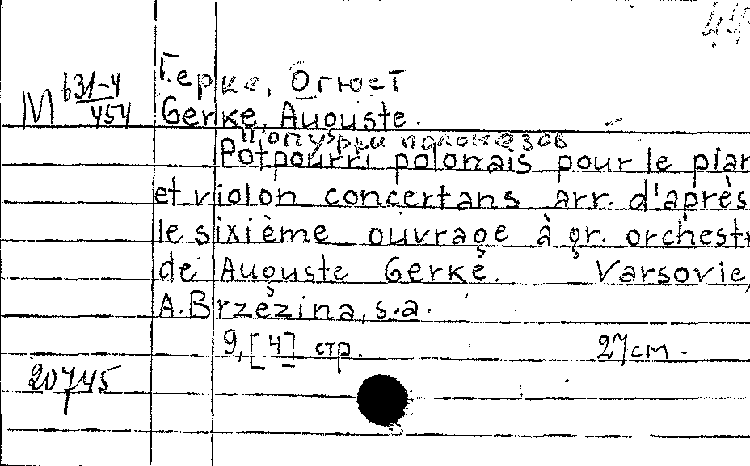 Герке, Огюст
М 631-4/454
Gerke, Auguste.
Попурри полонезов
Potpourri polonais pour le pian
et violon concertans arr. d'après
le sixième ouvrage à gr. orchestr
de Auguste Gerke. Varsovie,
A. Brzezina, s.a.
9, [4] стр. 27см.
20745